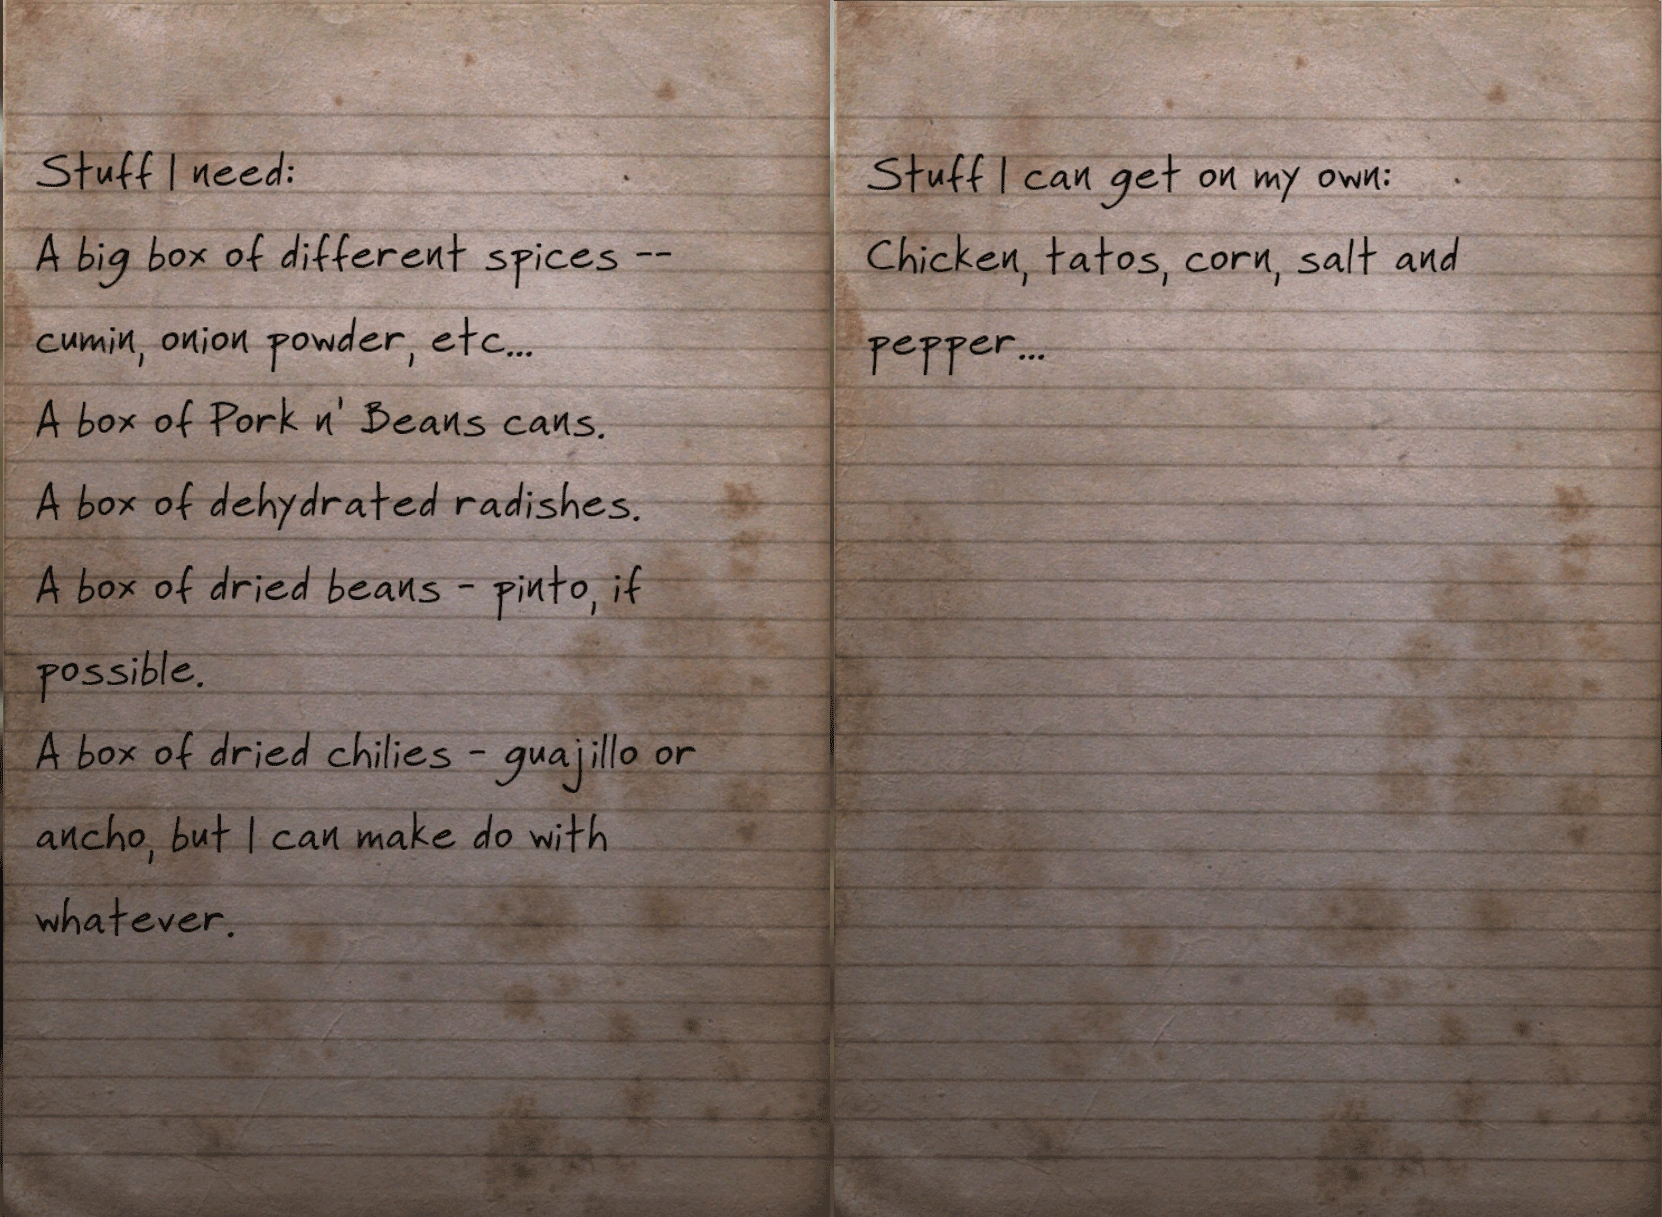 Stuff I need:
A big box of different spices --
cumin, onion powder, etc...
A box of Pork n' Beans cans.
A box of dehydrated radishes.
A box of dried beans - pinto, if
possible.
A box of dried chilies - guajillo or
ancho, but I can make do with
whatever.
Stuff I can get on my own:
Chicken, tatos, corn, salt and
pepper...